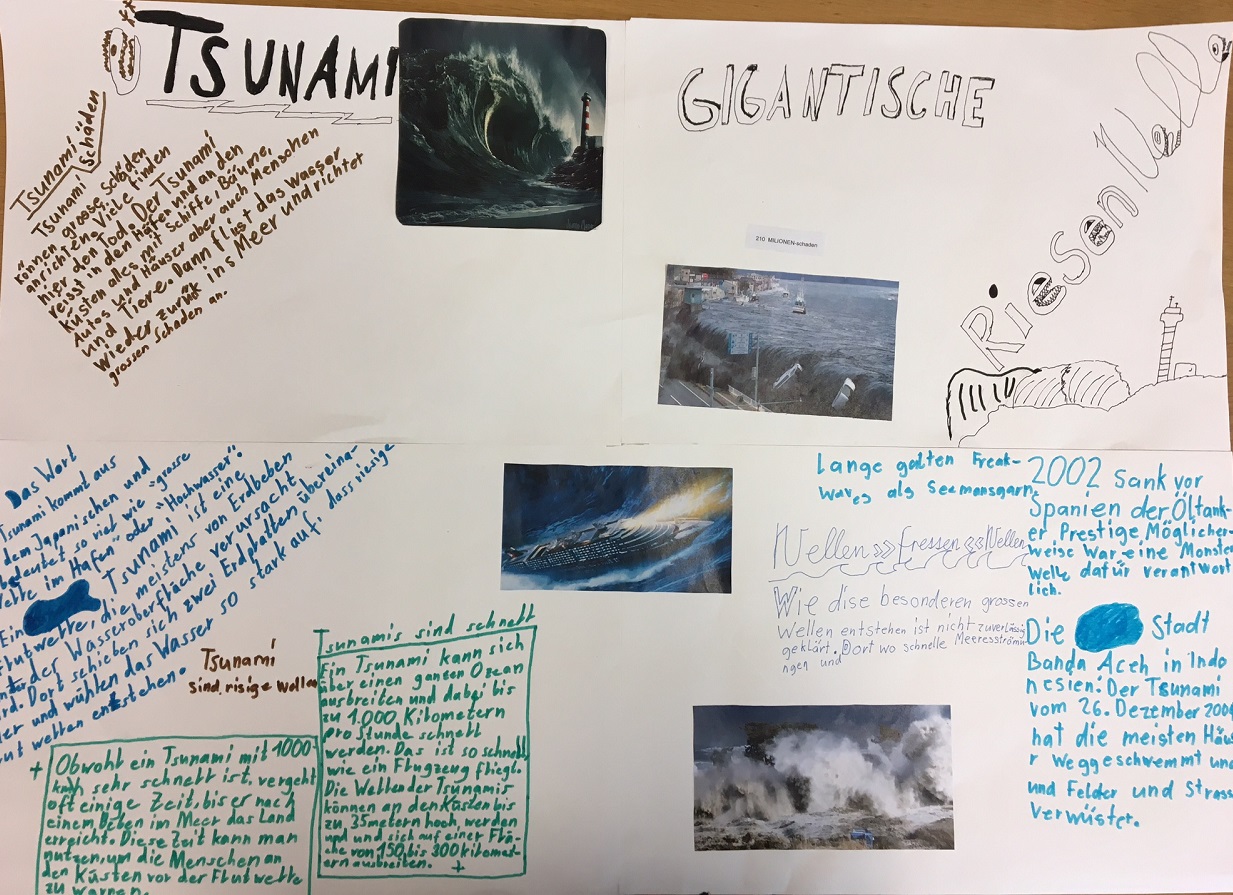 TSUNAMI
Tsunami
Schäden
Tsunami
können grosse schäden
anrichten. Viele finden
hier den Tod. Der Tsunami
reisst in den Häfen und an den
Küsten alles mit Schiffe, Bäume,
Autos und Häuser aber auch Menschen
und Tiere. Dann fliist das Wasser
Wieder zurük ins Meer und richtet
grossen schaden an.
GIGANTISCHE
Riesen Welle
210 MILIONEN-schaden
Das Wort
Tsunami kommt aus
dem Japanischen und
bedeutet so viel wie "grosse
Welle im Hafen" oder "Hochwasser".
Ein Tsunami ist eine
Flutwelle, die meistens von Erdbeben
unter der Wasseroberfläche verursacht
wird. Dort schieben sich zwei Erdplatten übereina-
der und wühlen das Wasser so stark auf, dass riesige
Flut wellen entstehen.
Tsunami
sind, risige wellen
Tsunamis sind schnell
Ein Tsunami kann sich
über einen ganzen Ozean
ausbreiten und dabei bis
zu 1.000 Kilometern
pro Stunde schnell
werden. Das ist so schnell,
wie ein Flugzeug fliegt.
Die Wellen der Tsunamis
können an den Küsten bis
zu 35metern hoch, werden
und und sich auf einer Flä-
che von 150, bis 300 kilomet-
ern ausbreiten.
Obwohl ein Tsunami mit 1000
kmh sehr schnell ist, vergeht
oft einige Zeit, bis er nach
einem Beben im Meer das Land
erreicht. Diese Zeit kann man
nutzen, um die Menschen an
den Küsten vor der Flutwelle
zu warnen.
Lange galten Freak-
Waves als Seemansgarn.
Wellen »fressen« Wellen
Wie dise besonderen grossen
Wellen entstehen ist nicht zuverlässig
geklärt. Dort wo schnelle Meeresströmu
ngen und
2002 Sank vor
Spanien der Öltank-
er Prestige. Möglicher-
weise war eine Monster
Welle dafür verantwort
lich.
Die Stadt
Banda Aceh in Indo
nesien: Der Tsunami
vom 26. Dezember 200
hat die meisten Häu
r weggeschwemmt und
und Felder und Strass
verwüster.